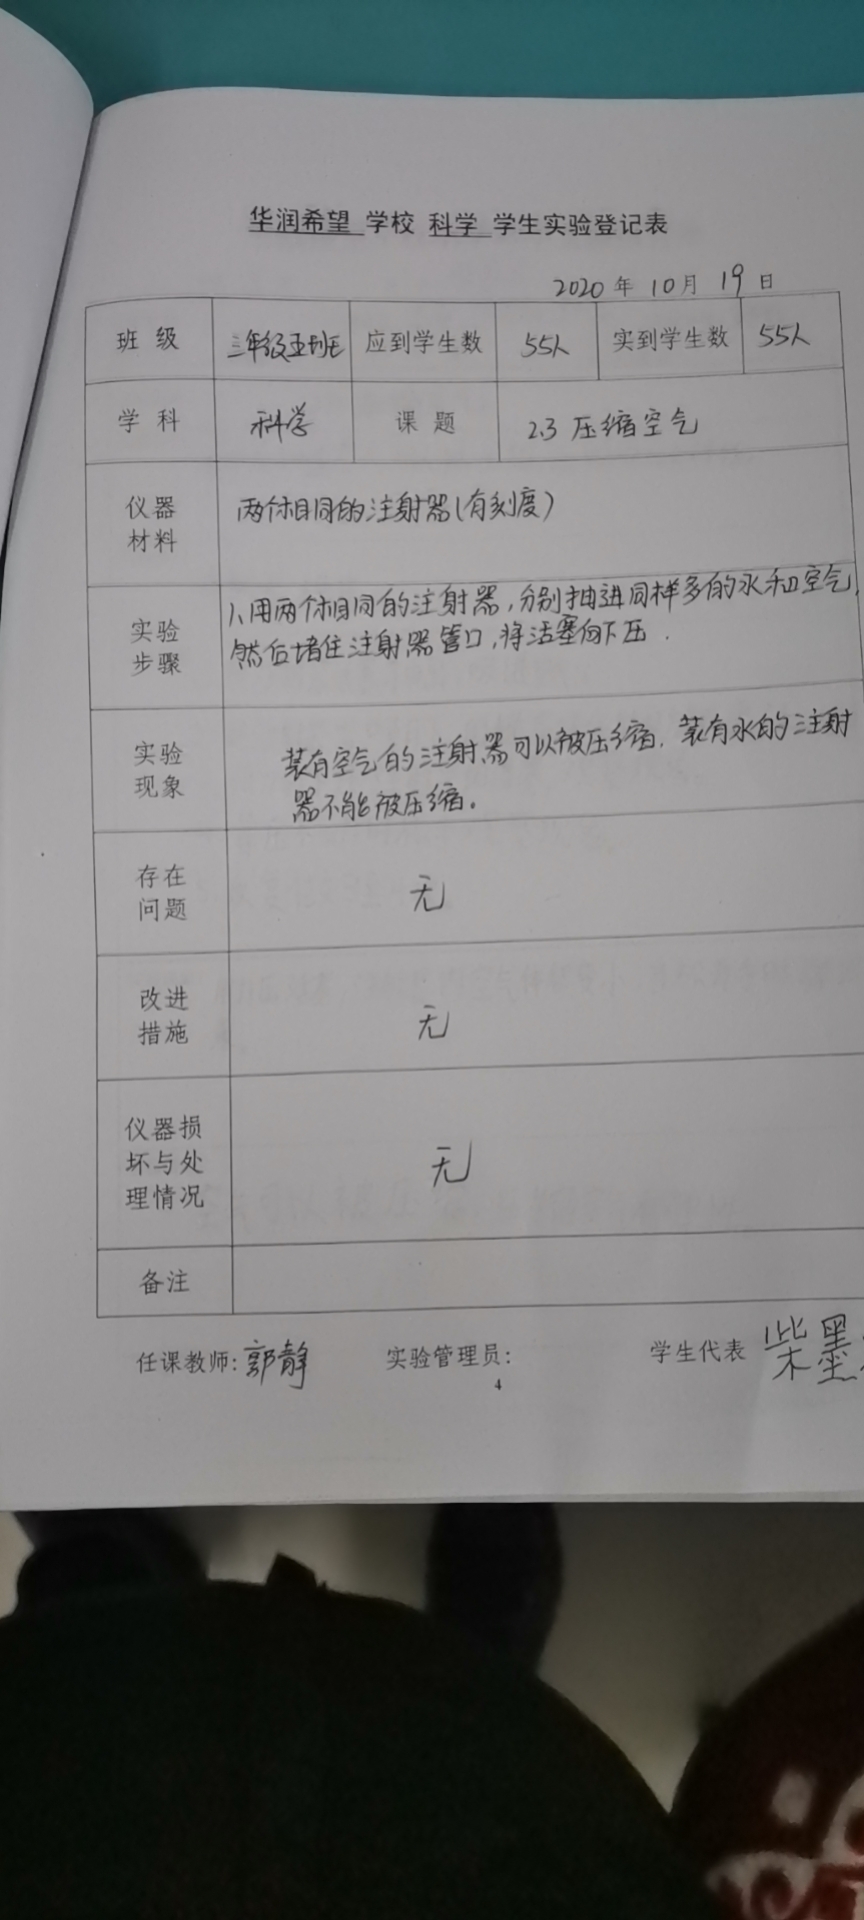 华润希望 学校 科学 学生实验登记表
2020 年 10 月 19 日
班 级 三年级五班 应到学生数 55人 实到学生数 55人
学 科 科学 课 题 2.3 压缩空气
仪器
材料
两个相同的注射器(有刻度)
实验
步骤
1、用两个相同的注射器,分别抽进同样多的水和空气,
然后堵住注射器管口,将活塞向下压.
实验
现象
装有空气的注射器可以被压缩,装有水的注射
器不能被压缩.
存在
问题
无
改进
措施
无
仪器损
坏与处
理情况
无
备注
任课教师: 郭静 实验管理员: 学生代表 柴墨
4